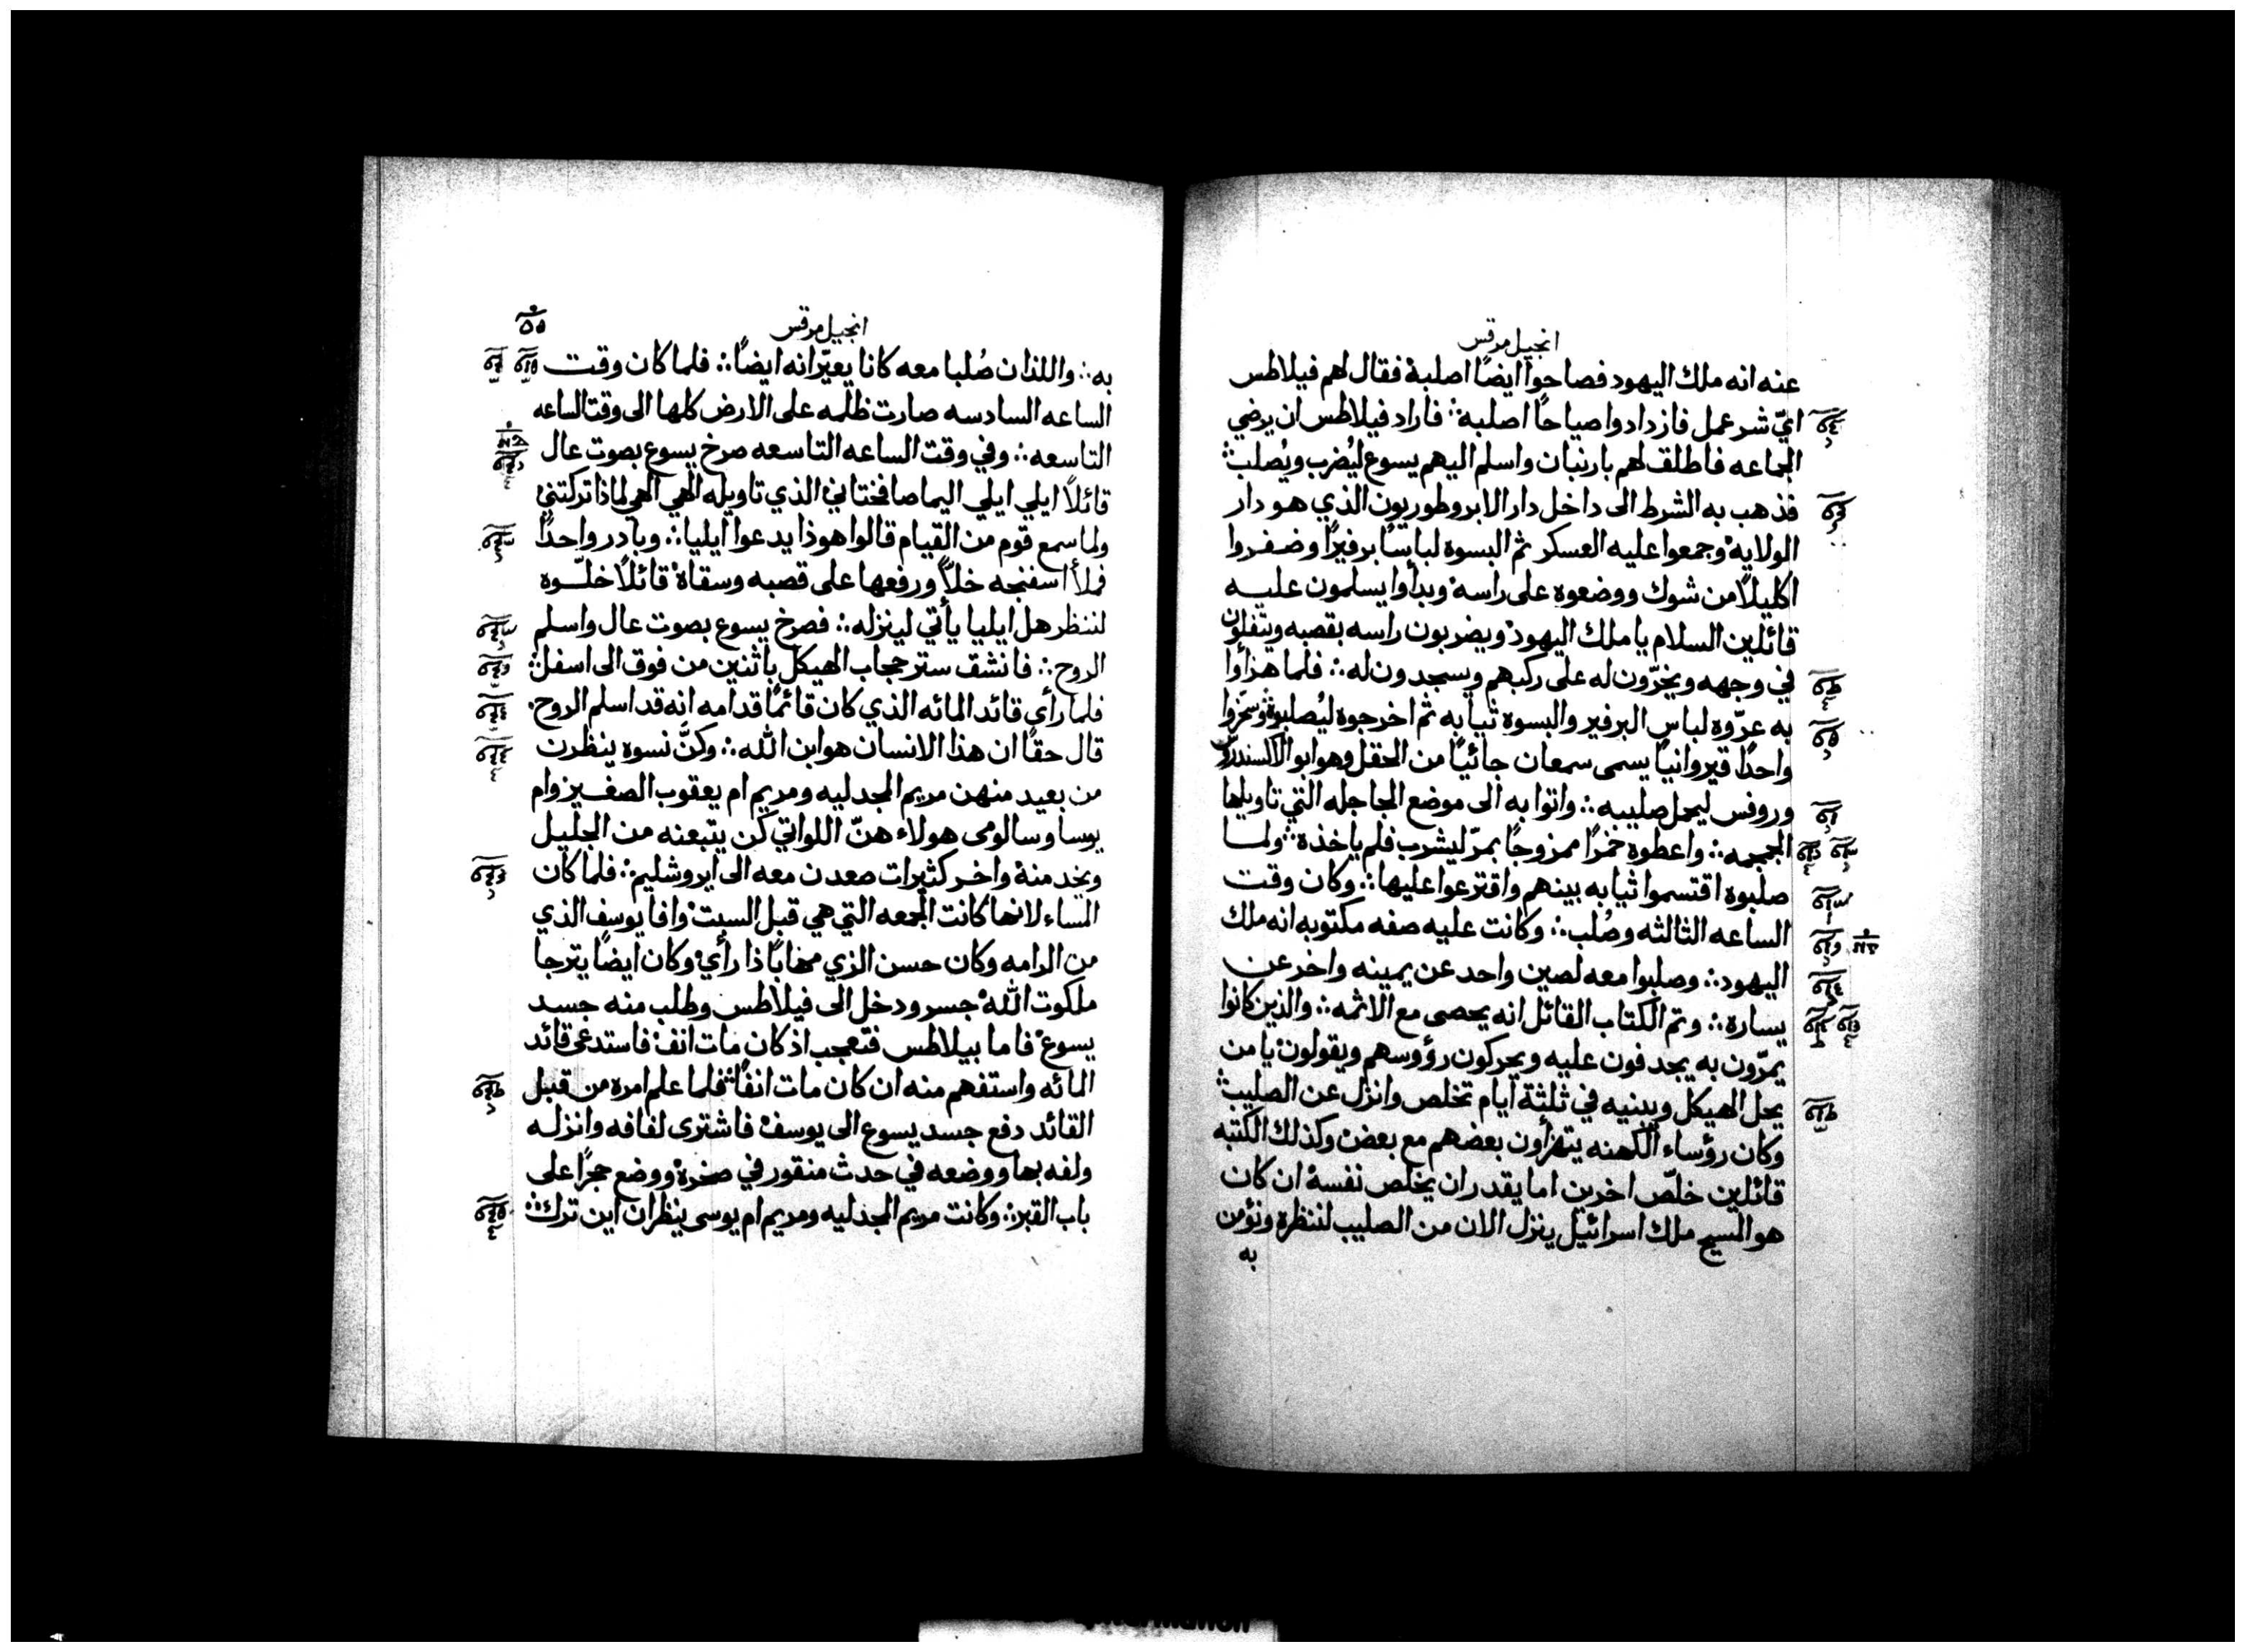 انجيل مرقس
عنه انه ملك اليهود فصاحوا ايضًا اصلبهُ فقال لهم فيلاطس
ايّ شر عمل فازدادوا صياحًا اصلبه ؞ فاراد فيلاطس ان يرضي
الجماعه فاطلق لهم بارنبان واسلم اليهم يسوع ليُضرب ويُصلب ؞
فذهب به الشرط الى داخل دار الابروطوريون الذي هو دار
الولايه وجمعوا عليه العسكر ثم البسوه لباسًا برفيرًا وضفروا
اكليلًا من شوك ووضعوه على راسه وبدأوا يسلمون عليه
قائلين السلام يا ملك اليهود ويضربون راسه بقصبه ويتفلون
في وجهه ويخرّون له على ركبهم ويسجدون له ؞ فلما هزأوا
به عرّوه لباس البرفير والبسوه ثيابه ثم اخرجوه ليُصلبوه وسخّروا
واحدًا قيروانيًا يسمى سمعان جائيًا من الحقل وهو ابو الكسندرس
وروفس ليحمل صليبه ؞ واتوا به الى موضع الجاجله التي تاويلها
الجمجمه ؞ واعطوه خمرًا ممزوجًا بمرّ ليشرب فلم ياخذه ؞ ولما
صلبوه اقتسموا ثيابه بينهم واقترعوا عليها ؞ وكان وقت
الساعه الثالثه وصُلب ؞ وكانت عليه صفه مكتوبه انه ملك
اليهود ؞ وصلبوا معه لصين واحد عن يمينه واخر عن
يساره ؞ وتم الكتاب القائل انه يحصى مع الاثمه ؞ والذين كانوا
يمرّون به يجدفون عليه ويحركون رؤوسهم ويقولون يا من
يحل الهيكل ويبنيه في ثلثة ايام تخلص وانزل عن الصليب ؞
وكان رؤساء الكهنه يتهزأون بعضهم مع بعض وكذلك الكتبه
قائلين خلّص اخرين اما يقدر ان يخلص نفسه ان كان
هو المسيح ملك اسرائيل ينزل الان من الصليب لننظره ونؤمن
به
انجيل مرقس
به ؞ واللذان صُلبا معه كانا يعيّرانه ايضًا ؞ فلما كان وقت
الساعه السادسه صارت ظلمه على الارض كلها الى وقت الساعه
التاسعه ؞ وفي وقت الساعه التاسعه صرخ يسوع بصوت عال
قائلًا ايلي ايلي اليما صافختاني الذي تاويله الهي الهي لماذا تركتني
ولما سمع قوم من القيام قالوا هوذا يدعوا ايليا ؞ وبادر واحدًا
فملأ اسفنجه خلًّا ورفعها على قصبه وسقاه قائلًا خلّوه
لننظر هل ايليا يأتي لينزله ؞ فصرخ يسوع بصوت عال واسلم
الروح ؞ فانشق ستر حجاب الهيكل باثنين من فوق الى اسفل ؞
فلما رأي قائد المائه الذي كان قائمًا قدامه انه قد اسلم الروح
قال حقًا ان هذا الانسان هو ابن الله ؞ وكنَّ نسوه ينظرن
من بعيد منهن مريم المجدليه ومريم ام يعقوب الصغير وام
يوسا وسالومى هولاء هنّ اللواتي كن يتبعنه من الجليل
ويخدمنه واخر كثيرات صعدن معه الى ايروشليم ؞ فلما كان
المساء لانها كانت الجمعه التي هي قبل السبت وافا يوسف الذي
من الرامه وكان حسن الزي مهابًا ذا رأي وكان ايضًا يترجا
ملكوت الله جسر ودخل الى فيلاطس وطلب منه جسد
يسوع فاما بيلاطس فتعجب اذ كان مات انفًا فاستدعى قائد
المائه واستفهم منه ان كان مات انفًا ؞ فلما علم امره من قبل
القائد دفع جسد يسوع الى يوسف فاشترى لفافه وانزله
ولفه بها ووضعه في حدث منقور في صخره ووضع حجرًا على
باب القبر ؞ وكانت مريم المجدليه ومريم ام يوسى ينظران اين ترك ؞